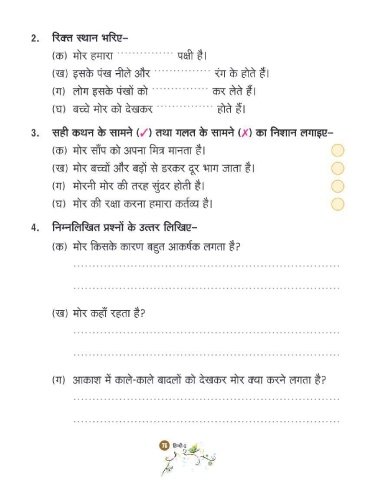 2. रिक्त स्थान भरिए–
(क) मोर हमारा ............... पक्षी है।
(ख) इसके पंख नीले और ............... रंग के होते हैं।
(ग) लोग इसके पंखों को ............... कर लेते हैं।
(घ) बच्चे मोर को देखकर ............... होते हैं।
3. सही कथन के सामने (✓) तथा गलत के सामने (✗) का निशान लगाइए–
(क) मोर साँप को अपना मित्र मानता है।
(ख) मोर बच्चों और बड़ों से डरकर दूर भाग जाता है।
(ग) मोरनी मोर की तरह सुंदर होती है।
(घ) मोर की रक्षा करना हमारा कर्तव्य है।
4. निम्नलिखित प्रश्नों के उत्तर लिखिए–
(क) मोर किसके कारण बहुत आकर्षक लगता है?
(ख) मोर कहाँ रहता है?
(ग) आकाश में काले-काले बादलों को देखकर मोर क्या करने लगता है?